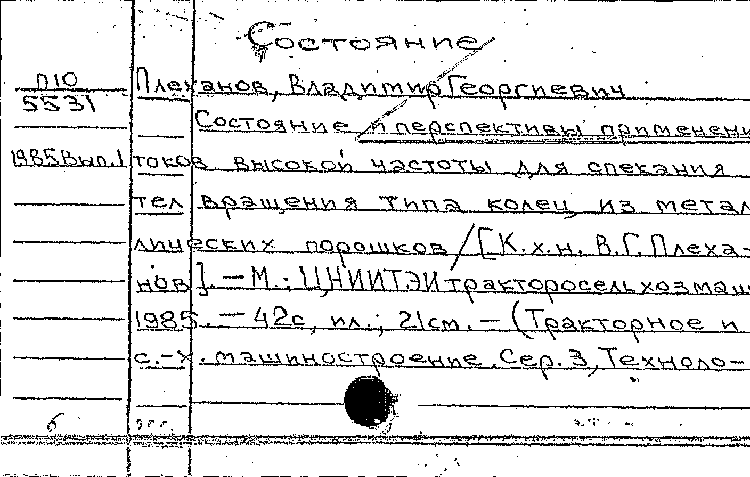 Состояние
П10
5531
1985 Вып.1
Плеханов, Владимир Георгиевич
Состояние и перспективы применени
токов высокой частоты для спекания
тел вращения типа колец из метал
лических порошков / [К.х.н. В.Г. Плеха-
нов]. – М.: ЦНИИТЭИтракторосельхозмаш
1985. – 42с, ил.; 21см. – (Тракторное и
с.-х. машиностроение. Сер. 3, Техноло-
б